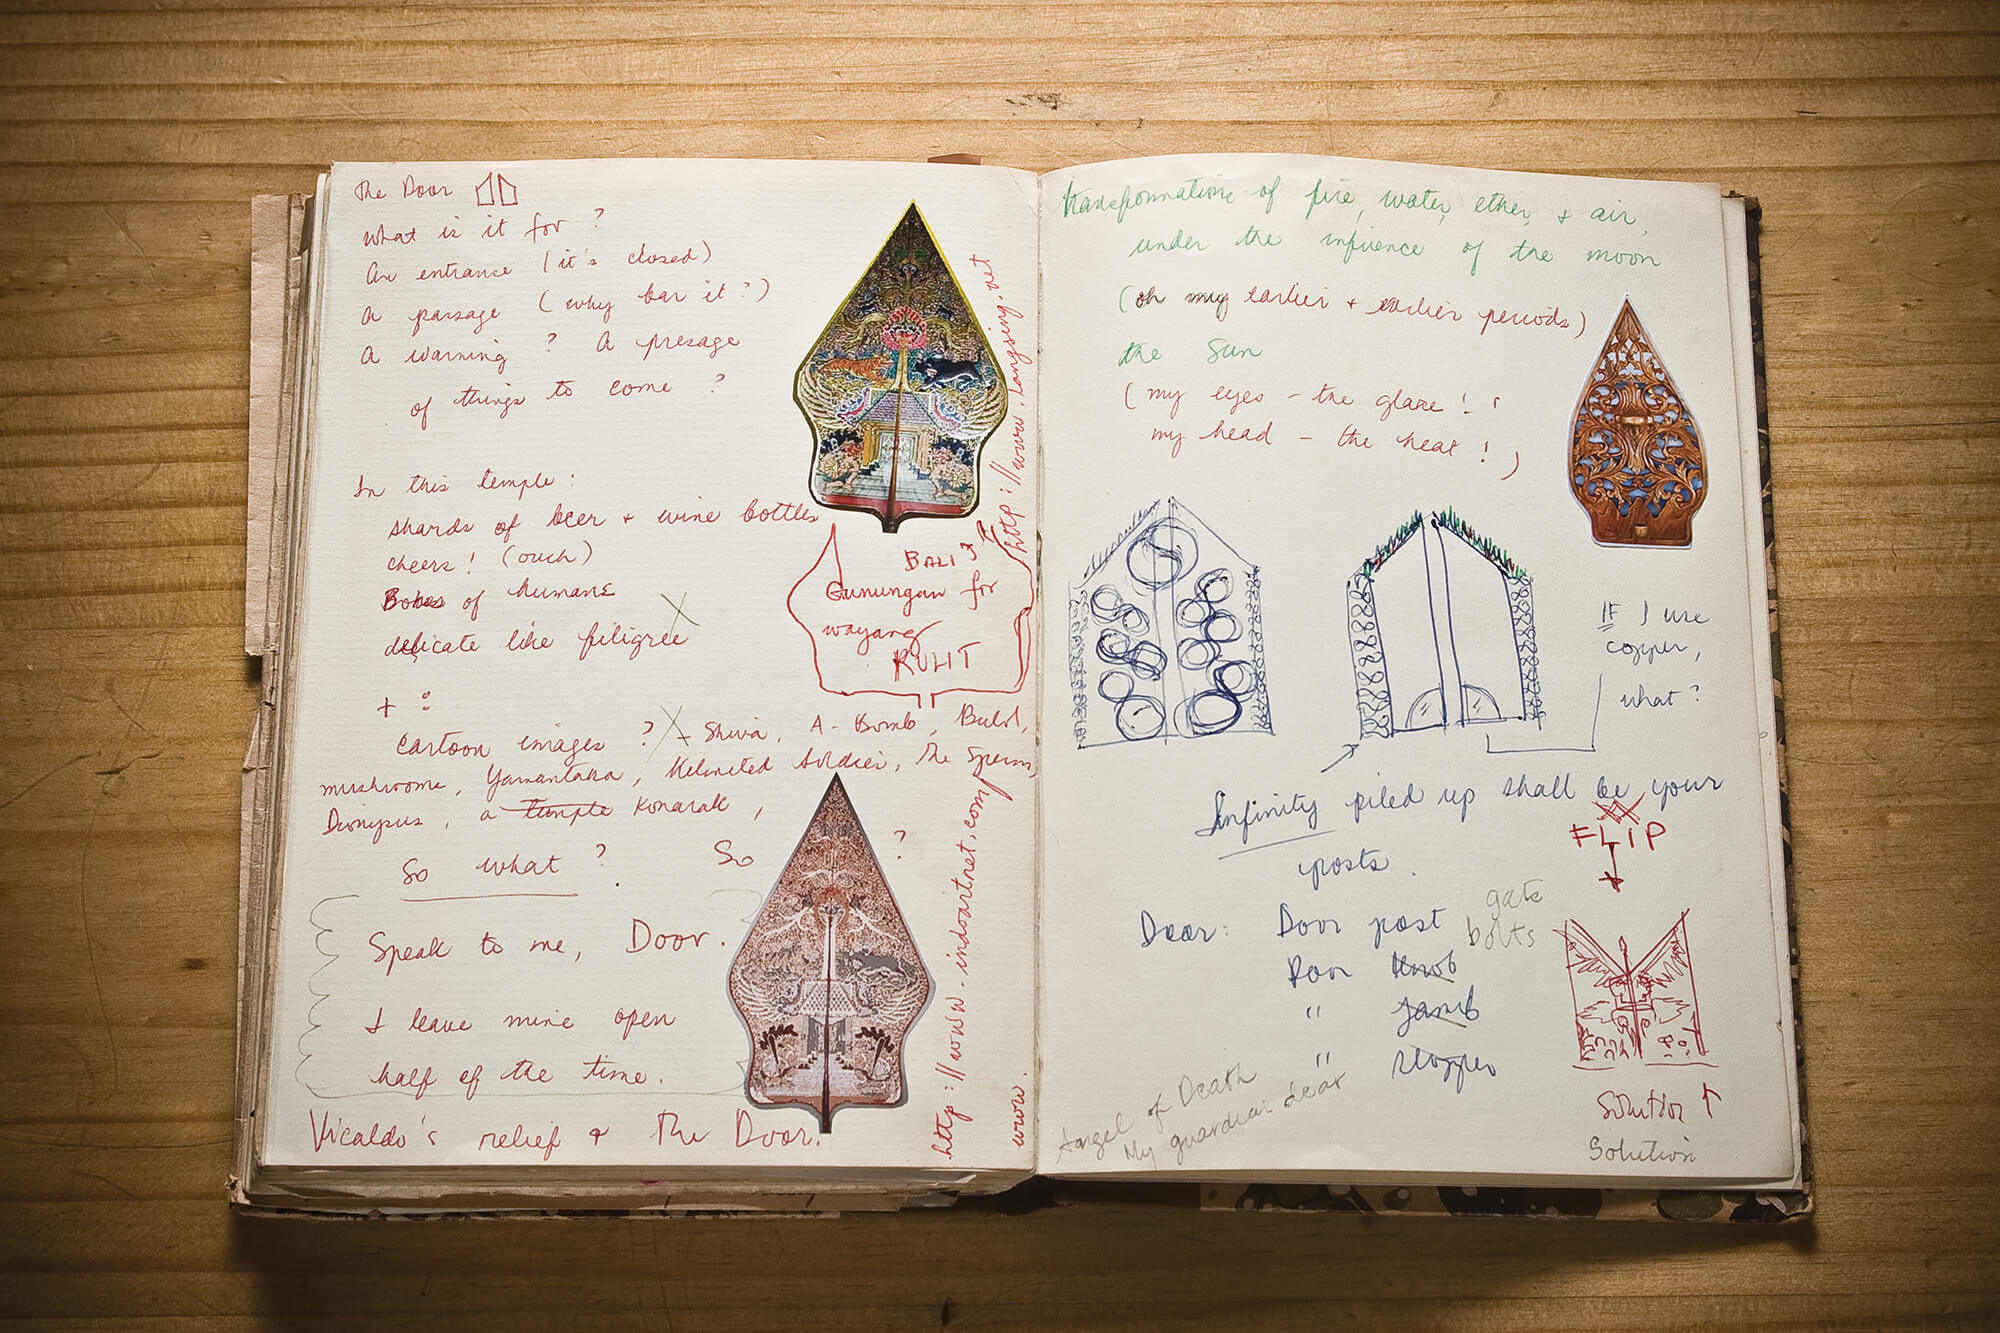 The Door
What is it for?
An entrance (it's closed)
A passage (why bar it?)
A warning? A presage
of things to come?
In this temple:
shards of beer + wine bottles
cheers! (ouch)
Bones of humans
delicate like filigree
+ :
Cartoon images? - Shiva, A-Bomb, Bulol,
mushrooms, Yamantaka, Helmeted Soldier, The Sperm,
Dionysus, a temple Konarak,
So what? So ?
Speak to me, Door.
I leave mine open
half of the time.
Vicaldo's relief & The Door.
BALI?
Gunungan for
wayang
KULIT
http://www.langsing.net
http://www.indoartnet.com
www.
transformations of fire, water, ether, & air,
under the influence of the moon
(oh my earlier + earlier periods)
the Sun
(my eyes - the glare!
my head - the heat!)
IF I use
copper,
what?
Infinity piled up shall be your
posts.
FLIP
Door: Door post gate
Door knob bolts
" Jamb
" stopper
Angel of Death
My guardian dear
Solution
Solution